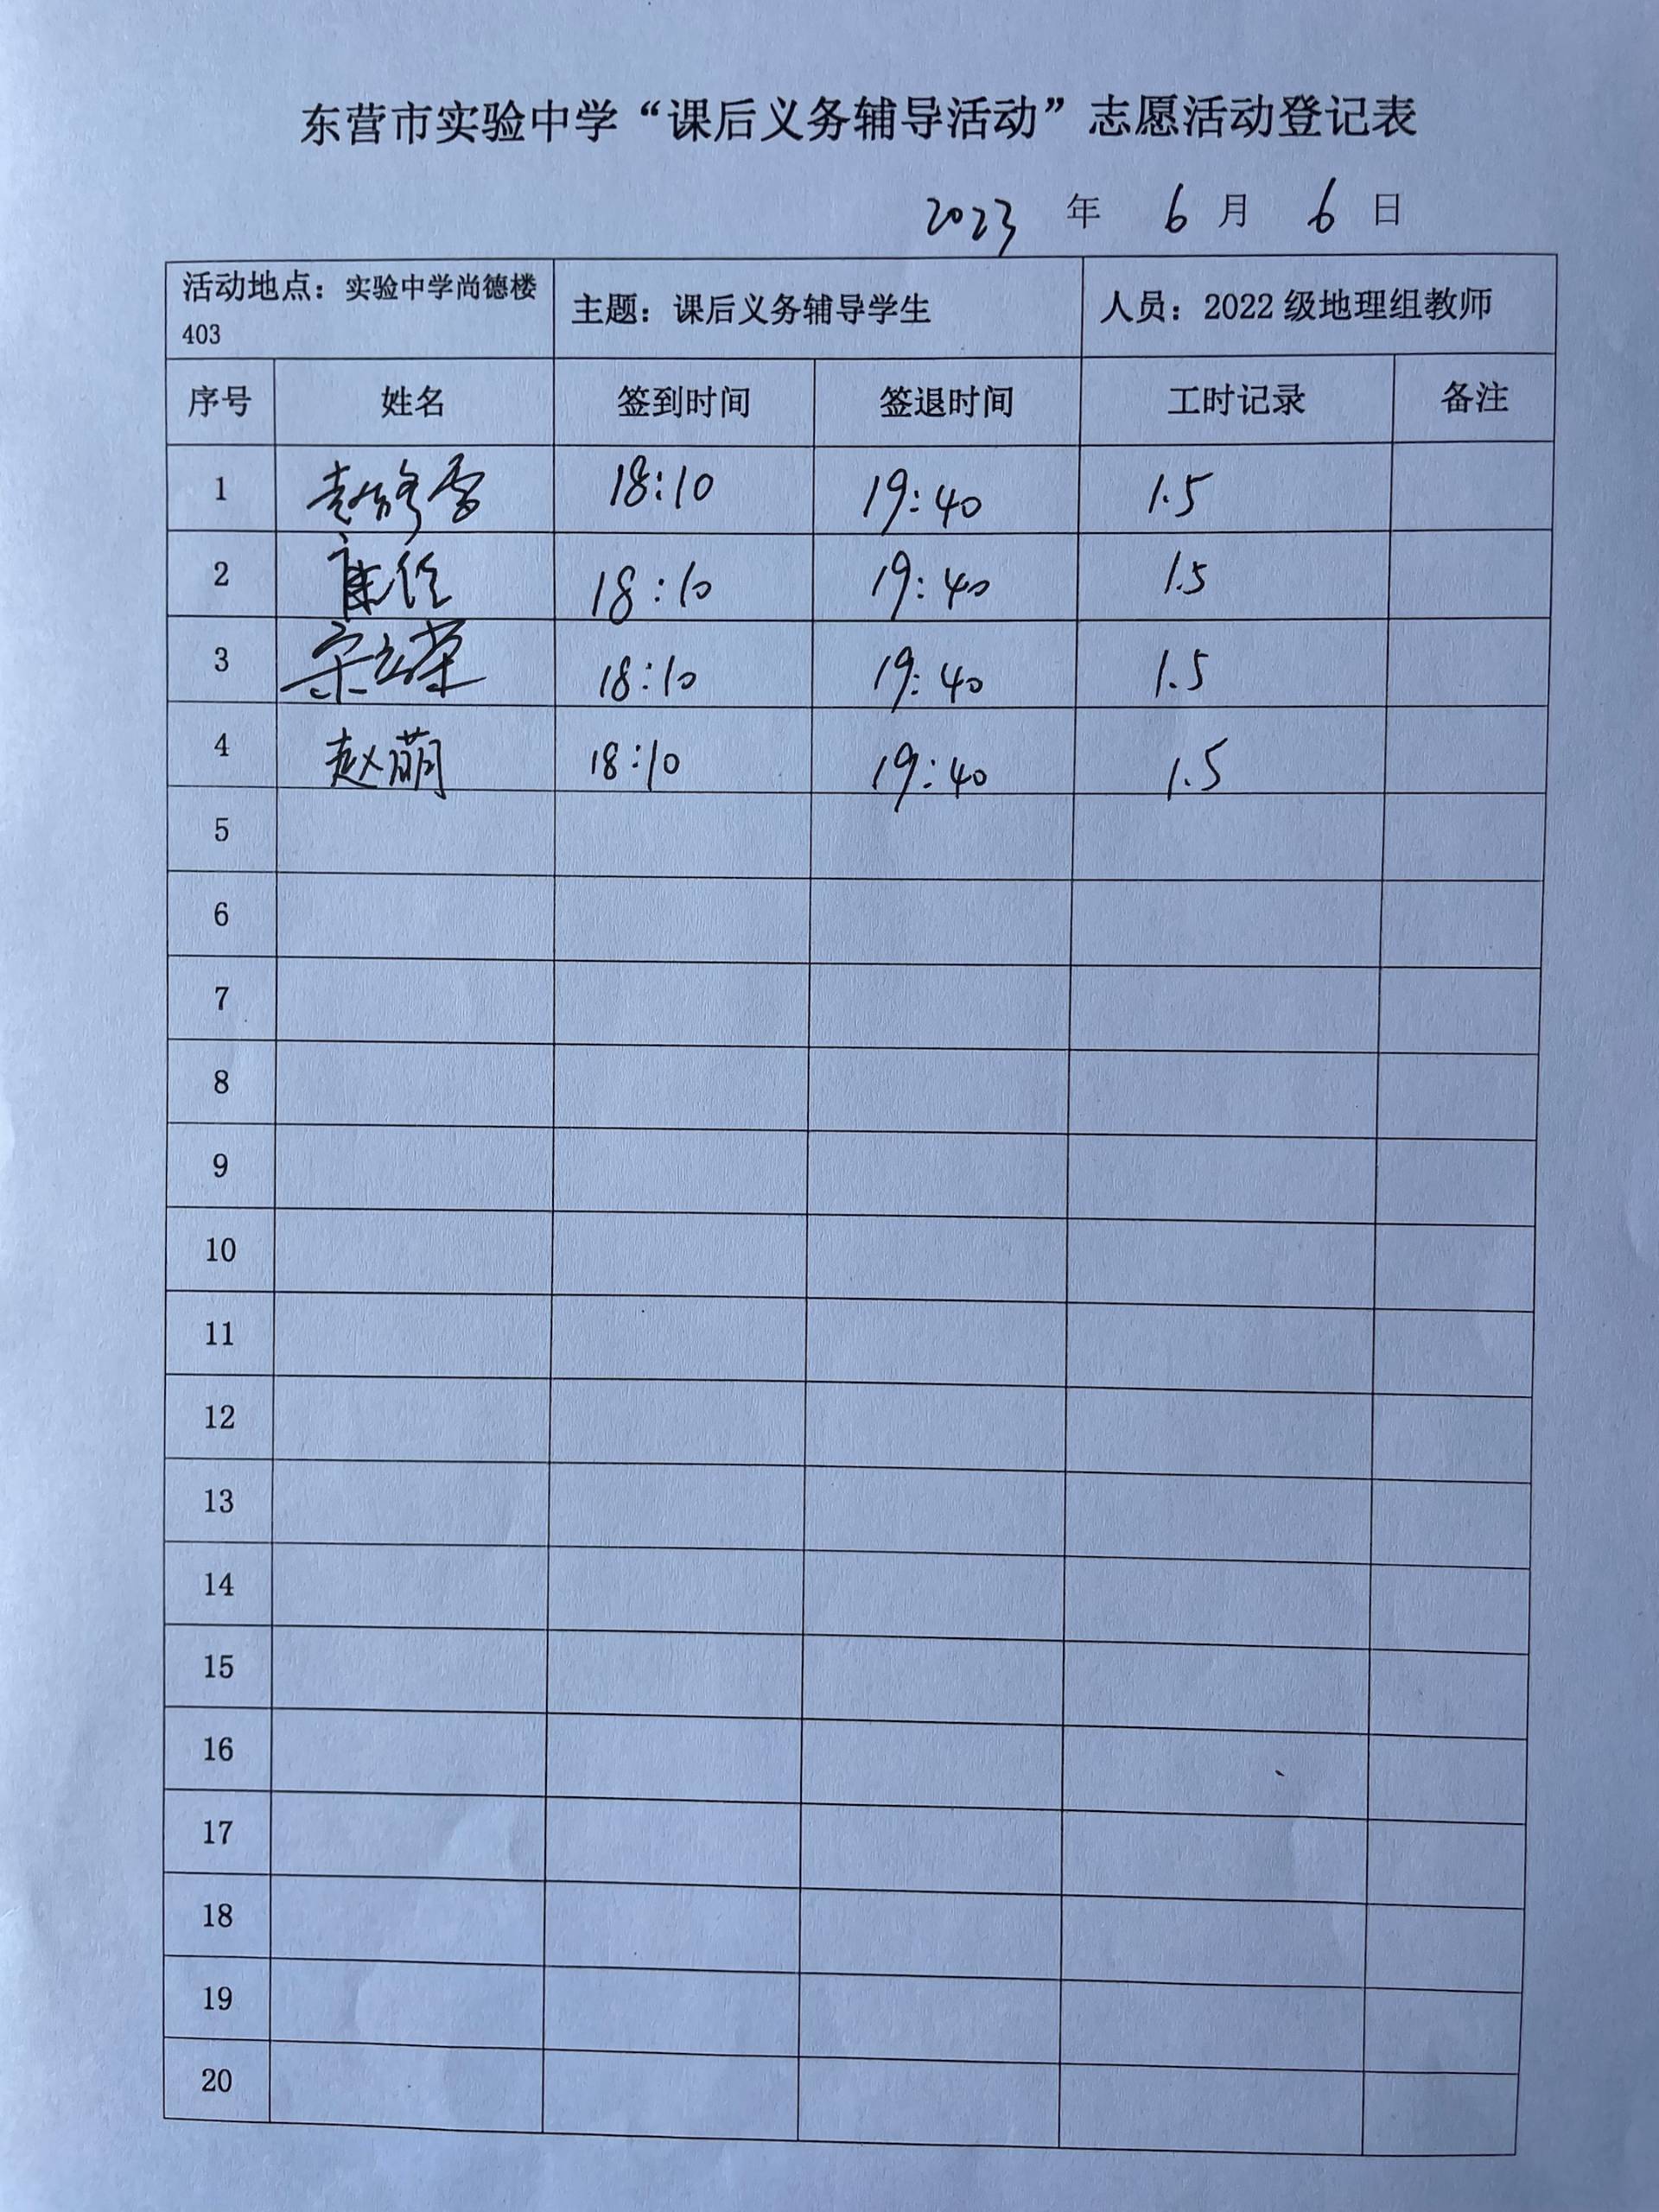 东营市实验中学“课后义务辅导活动”志愿活动登记表
2023 年 6 月 6 日
活动地点：实验中学尚德楼
403
主题：课后义务辅导学生
人员：2022 级地理组教师
序号 姓名 签到时间 签退时间 工时记录 备注
1 18:10 19:40 1.5
2 18:10 19:40 1.5
3 18:10 19:40 1.5
4 赵萌 18:10 19:40 1.5
5
6
7
8
9
10
11
12
13
14
15
16
17
18
19
20